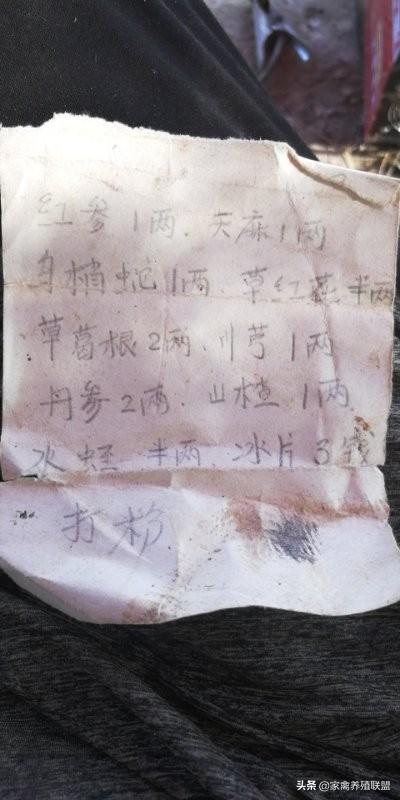 红参1两.天麻1两
乌梢蛇1两.草红花半两
草葛根2两.川芎1两
丹参2两.山楂1两
水蛭半两.冰片3钱
打粉
头条@家禽养殖联盟